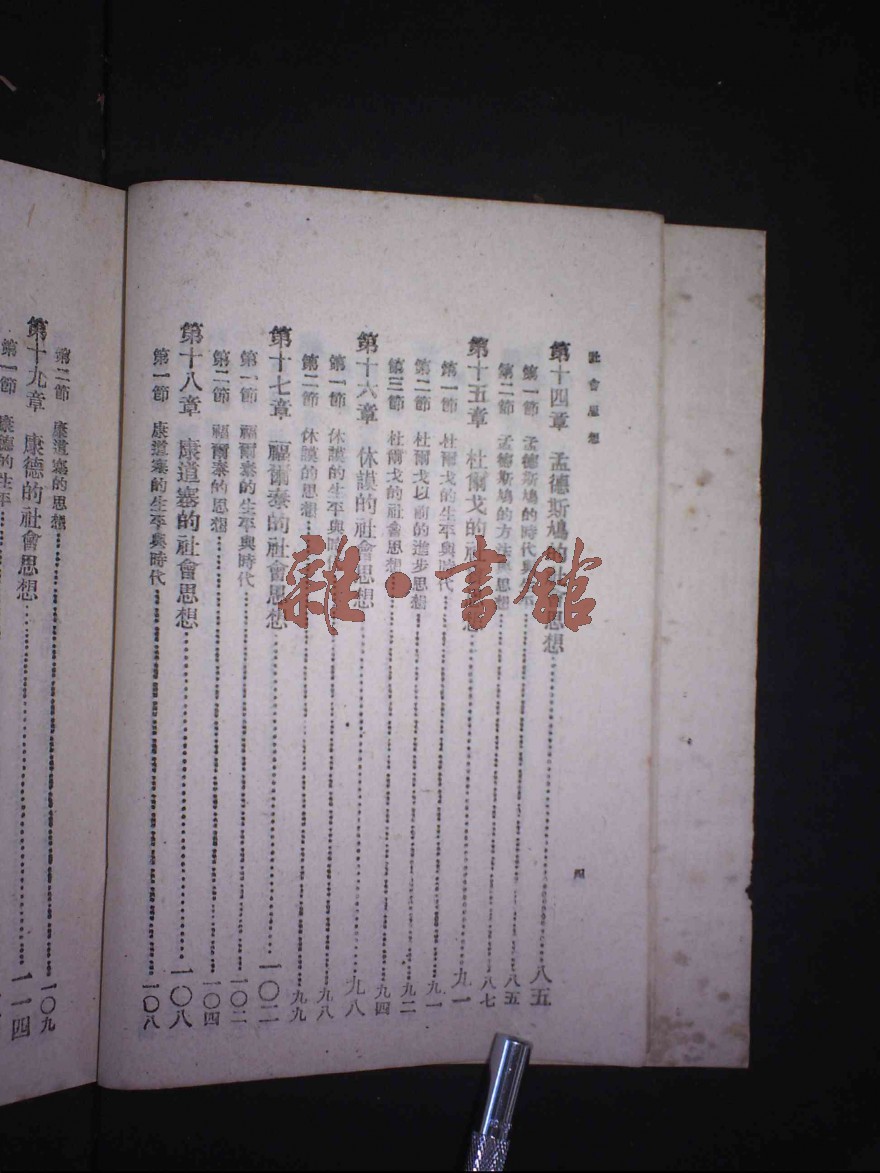 社會思想
四
第十四章 孟德斯鳩的 會思想 八五
第一節 孟德斯鳩的時代與 八五
第二節 孟德斯鳩的方法 思想 八七
第十五章 杜爾戈的社 思想 九一
第一節 杜爾戈的生平與時代 九一
第二節 杜爾戈以前的進步思想 九二
第三節 杜爾戈的社會思想 九四
第十六章 休謨的社會思想 九八
第一節 休謨的生平與時 九八
第二節 休謨的思想 九九
第十七章 福爾泰的社會思想 一〇二
第一節 福爾泰的生平與時代 一〇二
第二節 福爾泰的思想 一〇四
第十八章 康道塞的社會思想 一〇八
第一節 康道塞的生平與時代 一〇八
第二節 康道塞的思想 一〇九
第十九章 康德的社會思想 一一四
第一節 康德的生平
雜·書館